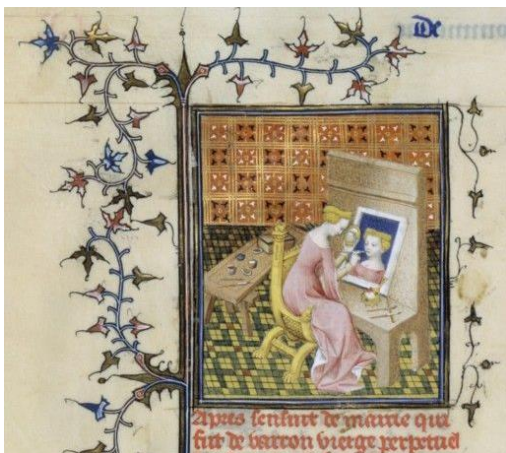 De
Apres sensuit de marcie qui
fut de varron vierge perpetuel